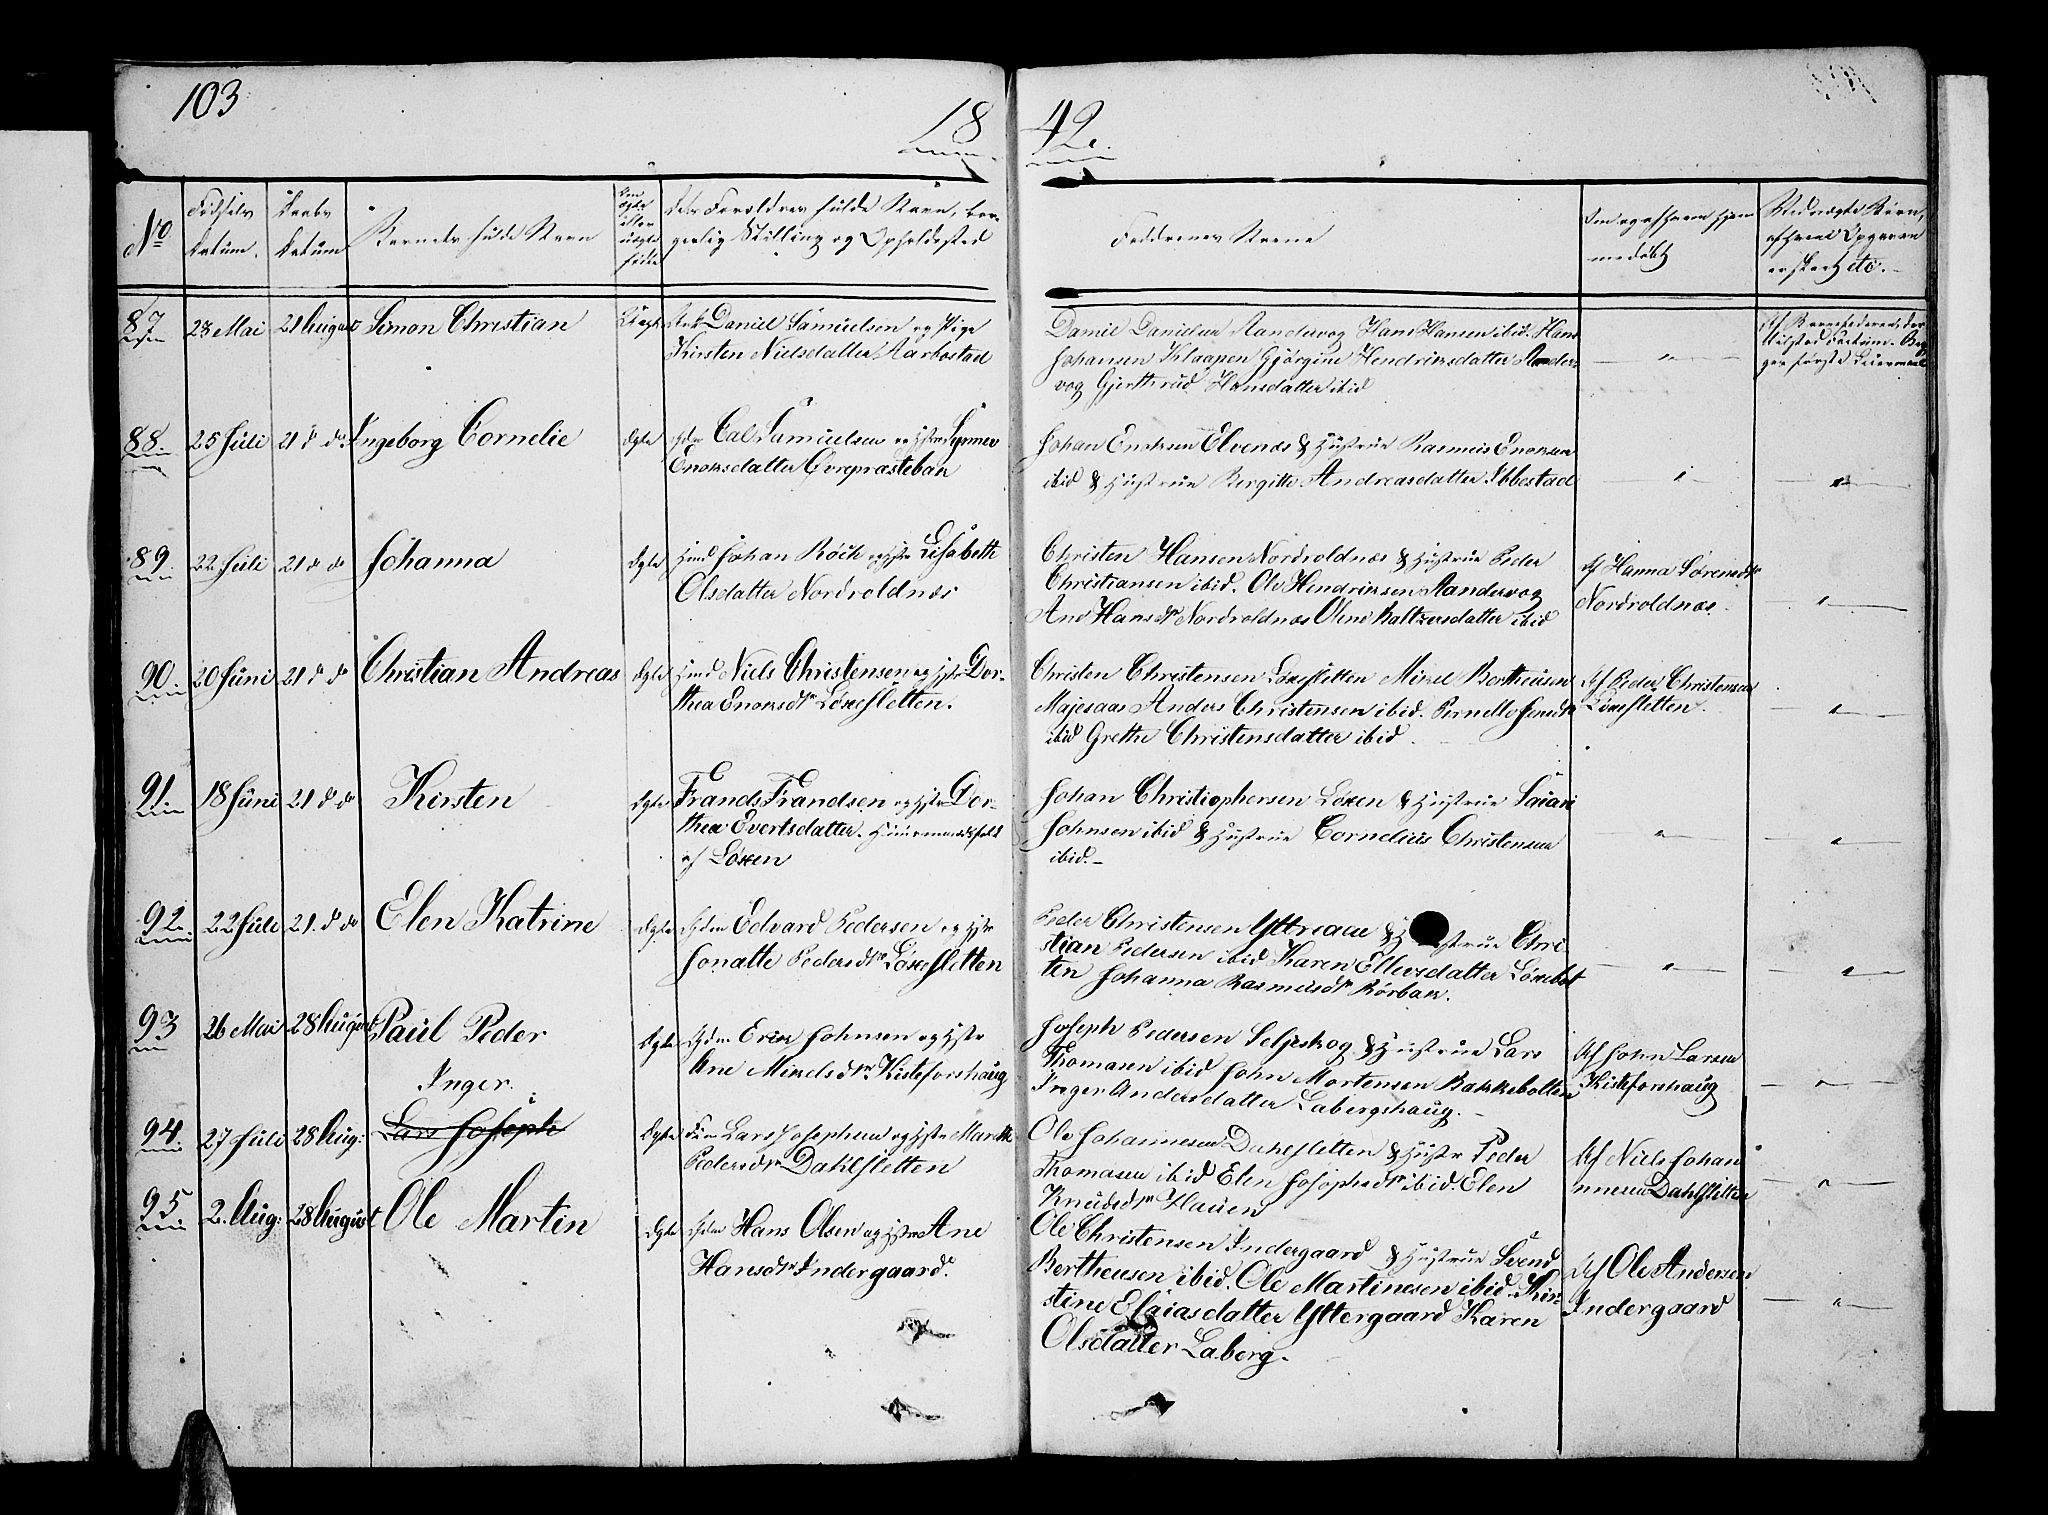 103
18 42.
No
Fødsels datum.
Daabs datum
Barnets fulde Navn
Om ægte eller uægte fødte
dets Forældres fulde Navn, bor-
gerlig Stilling og Opholdssted
Faddernes Navne
Om og af hvem hjem-
medøbt
Ved uægte Børn,
etc.
87 28 Mai 21 August Simon Christian
Daniel Samuelsen og Pige
Kirsten Nielsdatter Aarbostad
Daniel Danielsen Aandervog Hans Hansen ibid. Hans
Johansen Klaapen Gjørgine Hendriksdatter Ander-
vog Gjerthrud Hansdatter ibid
88. 25 Juli 21 d do Ingeborg Cornelie ægte
Samuelsen og Hstr Synnev
Enoksdatter Øvrepræstebak
Johan Enoksen Elvenæs & Hustrue Rasmus Enoksen
ibid & Hustrue Birgitte Andreasdatter Ibbestad
89. 22 Juli 21 d do Johanna ægte
Hmd Johan Røik og Hstr Lisabeth
Olsdatter Nordroldnæs
Christen Hansen Nordroldnæs & Hustrue Peder
Christiansen ibid. Ole Hendriksen Aandervog
Ane Hansdr Nordroldnæs Oline Baltzersdatter ibid
Af Hanna Sørensdtr
Nordroldnæs.
90. 20 Juni 21 d do Christian Andreas ægte
Hmd Niels Christensen og Hstr Dor-
thea Enoksdr Løxesletten.
Christen Christensen Løxesletten Mikel Bertheusen
Majesaas Anders Christensen ibid. Pernelle
ibid Grethe Christensdatter ibid.
Af Peder Christensen
Løxesletten.
91. 18 Juni 21 d do Kirsten ægte
Frands Frandsen og Hstr Dor-
thea Evertsdatter. Huusmandsfolk
af Løxen
Johan Christiophersen Løxen & Hustrue
Johnsen ibid & Hustrue Cornelius Christensen
ibid.
92. 22 Juli 21. d do Elen Katrine ægte
Edvard Pedersen og Hstr
Jonatte Pedersdr Løxesletten
Peder Christensen & Hustrue Chri-
stian Pedersen ibid Karen Ellersdatter Løxebot-
ten Johanna Rasmusdr Rørbak.
93 26 Mai 28 August Paul Peder ægte
Erik Johnsen og Hstr
Ane Mikelsdr. Kisteforshaug
Joseph Pedersen Seljeskog & Hustrue Lars
Thomasen ibid John Mortensen Bakkebotten
Inger Andersdatter Labergshaug.
Af John Larsen
Kisteforshaug
Inger.
94. 27 Juli 28 Aug: Lars Joseph ægte
Lars Josephsen og Hstr Mareth
Pedersdr Dahlsletten
Ole Johannesen Dahlsletten & Hustr Peder
Thomasen ibid Elen Josephsdr ibid. Elen
Knudsdr Hauen
Af Niels Johan
nnesen Dahlsletten
95 2. Aug: 28 August Ole Martin ægte
Hans Olsen og Hstr Ane
Hansdr Indergaard.
Ole Christensen Indergaard & Hustrue Svend
Bertheusen ibid. Ole Martinesen ibid. Kir-
stine Esaiasdatter Yttergaard Karen
Olsdatter Laberg.
Af Ole Andersen
Indergaard